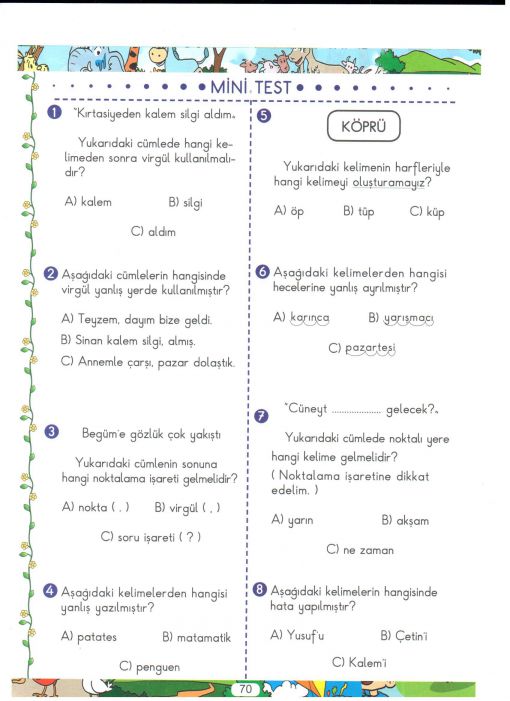 MİNİ TEST
1 "Kırtasiyeden kalem silgi aldım."
Yukarıdaki cümlede hangi ke-
limeden sonra virgül kullanılmalı-
dır?
A) kalem B) silgi
C) aldım
2 Aşağıdaki cümlelerin hangisinde
virgül yanlış yerde kullanılmıştır?
A) Teyzem, dayım bize geldi.
B) Sinan kalem silgi, almış.
C) Annemle çarşı, pazar dolaştık.
3 Begüm'e gözlük çok yakıştı
Yukarıdaki cümlenin sonuna
hangi noktalama işareti gelmelidir?
A) nokta ( . ) B) virgül ( , )
C) soru işareti ( ? )
4 Aşağıdaki kelimelerden hangisi
yanlış yazılmıştır?
A) patates B) matamatik
C) penguen
5 KÖPRÜ
Yukarıdaki kelimenin harfleriyle
hangi kelimeyi oluşturamayız?
A) öp B) tüp C) küp
6 Aşağıdaki kelimelerden hangisi
hecelerine yanlış ayrılmıştır?
A) karınca B) yarışmacı
C) pazartesi
7 "Cüneyt .................... gelecek?"
Yukarıdaki cümlede noktalı yere
hangi kelime gelmelidir?
( Noktalama işaretine dikkat
edelim. )
A) yarın B) akşam
C) ne zaman
8 Aşağıdaki kelimelerin hangisinde
hata yapılmıştır?
A) Yusuf'u B) Çetin'i
C) Kalem'i
70